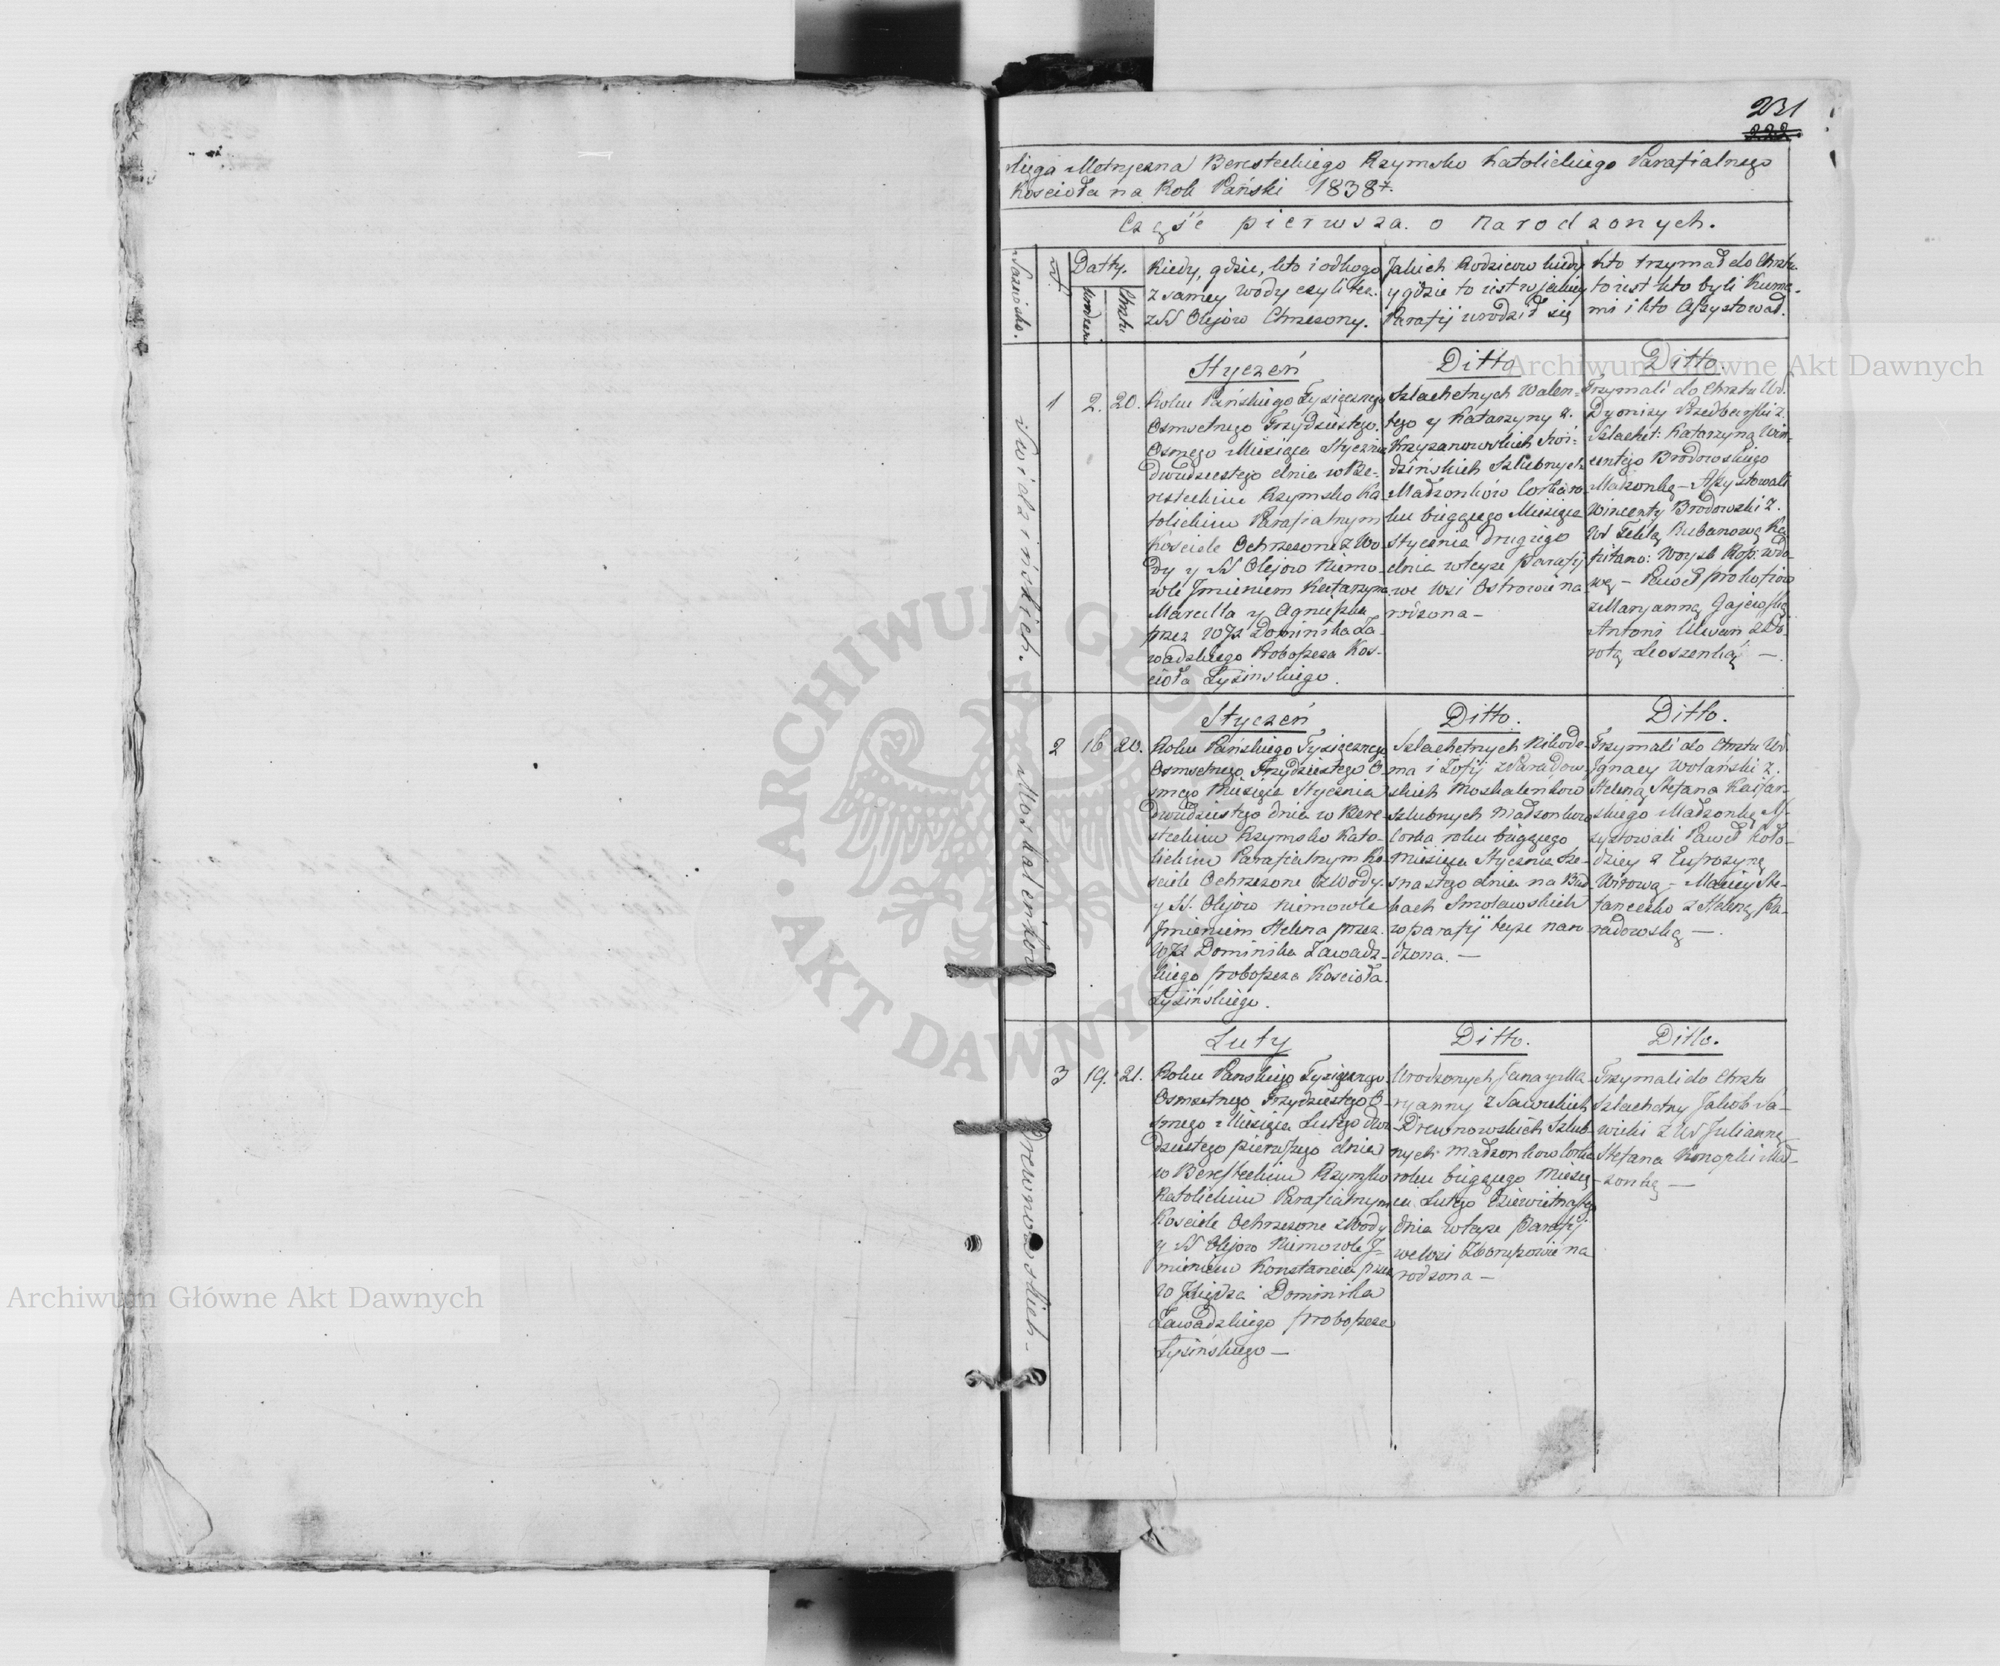 231
222
Xięga Metryczna Beresteckiego Rzymsko Katolickiego Parafialnego
Kościoła na Rok Pański 1838.
Część pierwsza o Narodzonych.
Nazwisko.
N.
Datty.
Urodzeń
Chrztu
Kiedy, gdzie, kto i od kogo
z samey wody czyli też
z SS Olejow Chrzczony.
Jakich Rodzicow kiedy
y gdzie to iest w jakiey
Parafij urodził się
Kto trzymał do Chrztu
to iest kto byli Kuma-
mi i kto Assystował.
Styczeń
1 2. 20.
Swidzinskich.
Roku Pańskiego Tysięcznego
Osmsetnego Trzydziestego
Osmego Miesiąca Stycznia
dwudziestego dnia w Be-
resteckim Rzymsko Ka-
tolickim Parafialnym
Kosciele Ochrzczone z Wo-
dy y SS Olejow Niemo-
wle Jmieniem Katarzyna
Marcella y Agnieszka
przez WJX Dominika Za-
wadzkiego Proboszcza Koś-
cioła Łysinskiego.
Ditto
Szlachetnych Walen-
tego y Katarzyny z
Krzyzanowskich Swi-
dzińskich Szlubnych
Małżonków Corka ro-
ku bieżącego Miesiąca
Stycznia drugiego
dnia w teyże parafij
we Wsi Ostrowie na
rodzona -
Ditto.
Trzymali do Chrztu Ur.
Dyonizy z
Szlachet: Katarzyną Win-
centego Brodowskiego
Małżonką - Assystowali
Wincenty Brodowski z
Ur Teklą Rubanową Ka
pitano: Woysk Ross: wdo-
wą - Paweł Prokofiow
z Maryanną
Antoni z Do-
rotą Leoszenką -
Styczeń
2 16 20.
Moskalenkow
Roku Pańskiego Tysięcznego
Osmsetnego Trzydziestego O-
smego Miesiąca Stycznia
Dwudziestego dnia w Bere-
steckim Rzymsko Kato-
lickim Parafialnym Ko-
sciele Ochrzczone z Wody
y SS. Olejow Niemowle
Jmieniem Helena przez
WJX Dominika Zawadz-
kiego proboszcza Koscioła
Łysińskiego.
Ditto.
Szlachetnych Nikode-
ma i Zofij z Paradow-
skich Moskalenkow
Szlubnych Małżonkow
Corka roku bieżącego
Miesiąca Stycznia Sze-
snastego dnia na Bud
kach Smolawskich
w parafij teyże naro
dzona. -
Ditto.
Trzymali do Chrztu Ur
Jgnacy Wolański z
Heleną Stefana
skiego Małżonką As-
systowali Paweł Koło-
dziey z Eufrozyną
- Maciey Ste-
fancecko z Heleną Pa-
radowską -
Luty
3 19. 21.
Drewnowskich -
Roku Panskiego Tysięcznego
Osmsetnego Trzydziestego O-
smego Miesiąca Lutego dwu
dziestego pierwszego dnia
w Beresteckim Rzymsko
Katolickim Parafialnym
Kosciele Ochrzczone z Wody
y SS Olejow Niemowle J-
mieniem Konstancia przez
W Xiędza Dominika
Zawadzkiego proboszcza
Łysińskiego -
Ditto.
Urodzonych Jana y Ma
ryanny z Sawickich
Drewnowskich Szlub-
nych małżonkow Corka
roku bieżącego Miesią
ca Lutego Dziewietnastego
dnia w teyże Parafij
we Wsi na
rodzona -
Ditto.
Trzymali do Chrztu
Szlachetny Jakob Sa-
wicki z Ur Julianną
Stefana Konopki Mał-
żonką -
Archiwum Główne Akt Dawnych
Archiwum Główne Akt Dawnych
ARCHIWUM GŁÓWNE AKT DAWNYCH